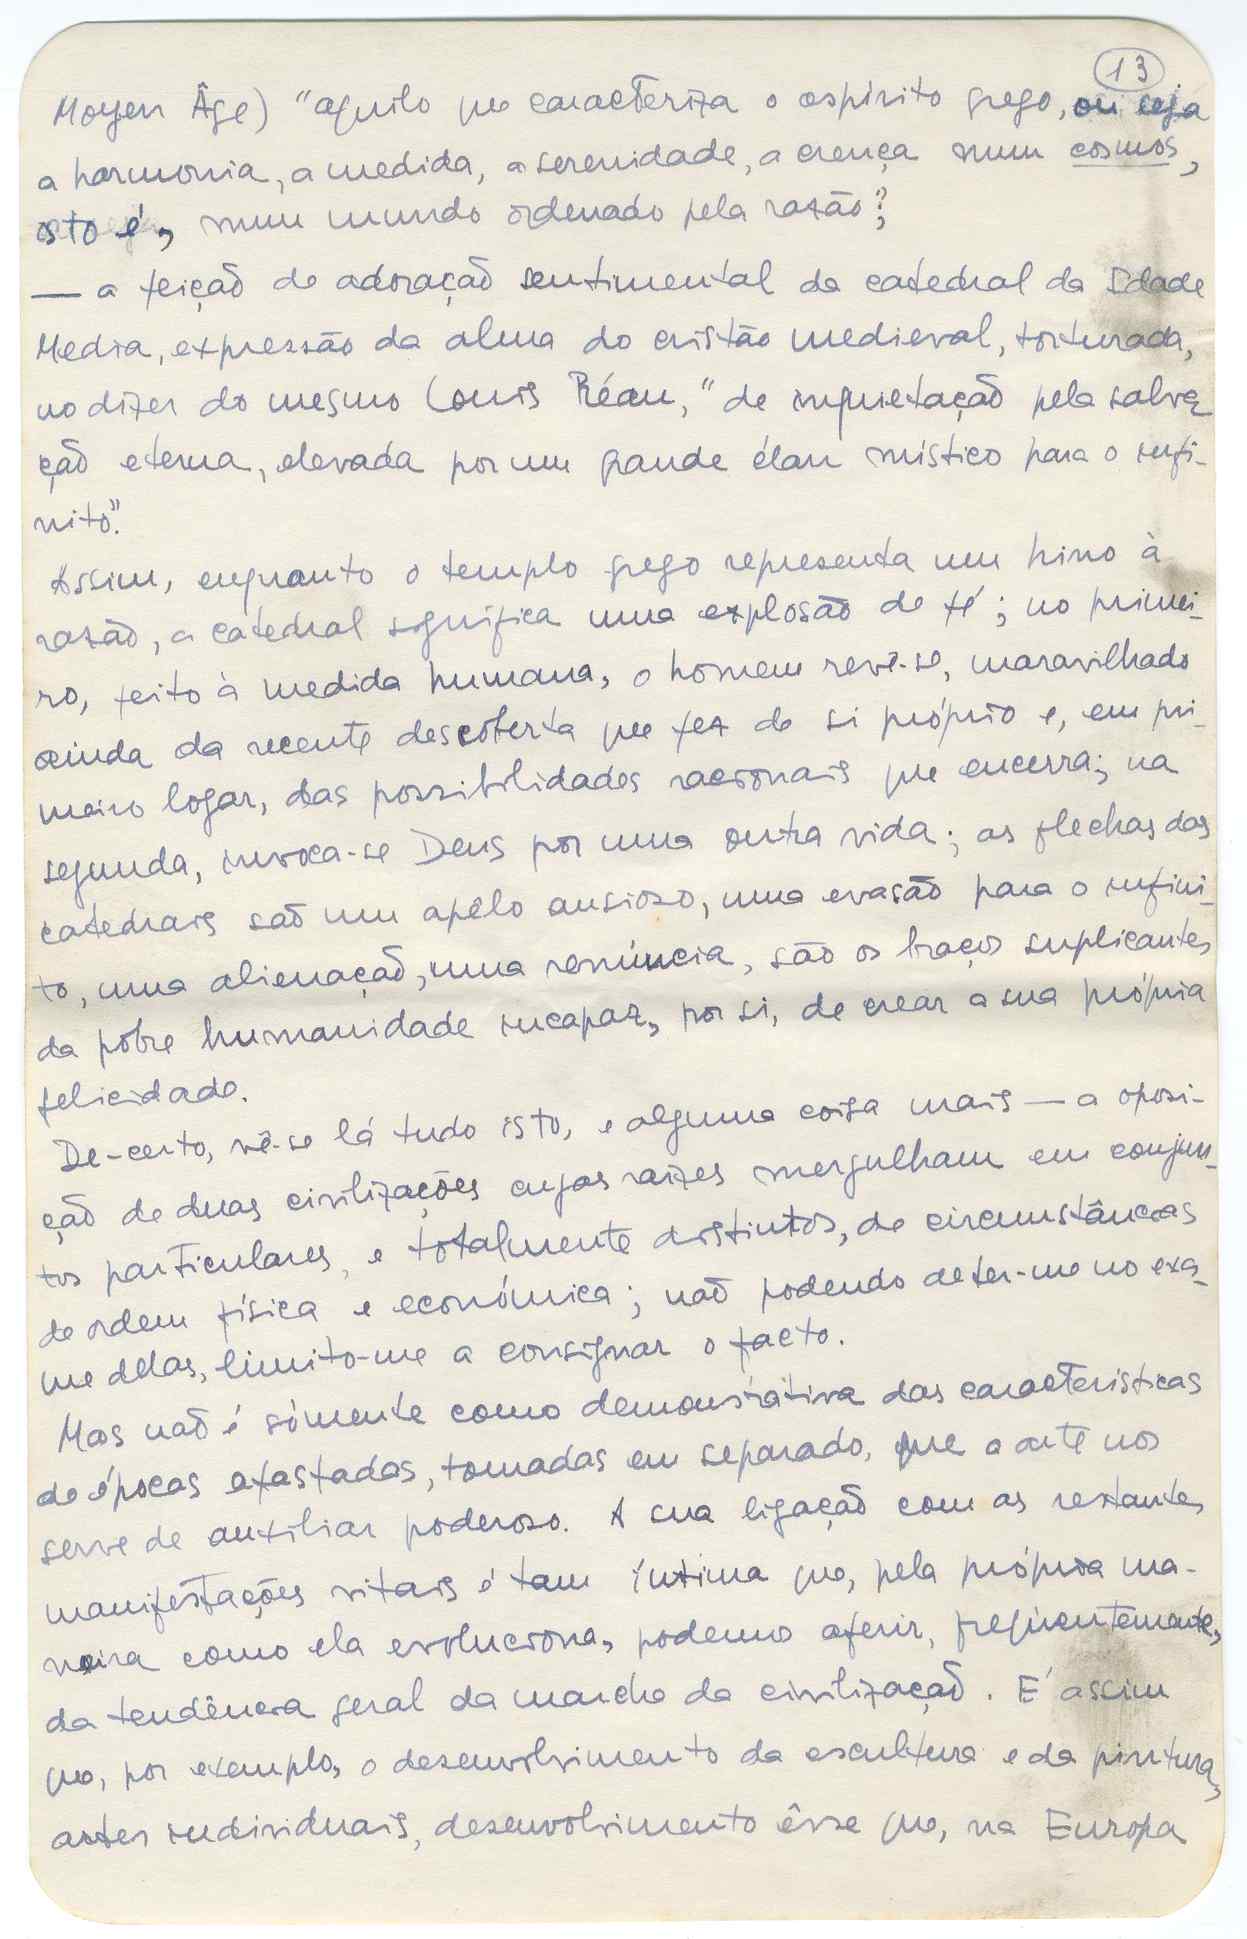 13
Moyen Âge) "aquilo que caracteriza o espírito grego, ou seja
a harmonia, a medida, a serenidade, a crença num cosmos,
isto é, num mundo ordenado pela razão";
— a feição de adoração sentimental da catedral da Idade
Media, expressão da alma do cristão medieval, torturada,
no dizer do mesmo Louis Réau, "de inquietação pela salva
ção eterna, elevada por um grande élan místico para o infi-
nito".
Assim, enquanto o templo grego representa um hino à
razão, a catedral significa uma explosão de fé; no primei-
ro, feito à medida humana, o homem revê-se, maravilhado
ainda da recente descoberta que fez de si próprio e, em pri-
meiro logar, das possibilidades racionais que encerra; na
segunda, invoca-se Deus por uma outra vida; as flechas das
catedrais são um apêlo ansioso, uma evasão para o infini-
to, uma alienação, uma renúncia, são os braços suplicantes
da pobre humanidade incapaz, por si, de crear a sua própria
felicidade.
De-certo, vê-se lá tudo isto, e alguma coisa mais — a oposi-
ção de duas civilizações cujas raizes mergulham em conjun-
tos particulares, e totalmente distintos, de circunstâncias
de ordem física e económica; não podendo deter-me no exa-
me delas, limito-me a consignar o facto.
Mas não é sòmente como demonstrativa das caracteristicas
de épocas afastadas, tomadas em separado, que a arte nos
serve de auxiliar poderoso. A sua ligação com as restantes
manifestações vitais é tam íntima que, pela própria ma-
neira como ela evoluciona, podemo aferir, freqüentemente,
da tendência geral da marcha da civilização. É assim
que, por exemplo, o desenvolvimento da escultura e da pintura,
artes individuais, desenvolvimento êsse que, na Europa